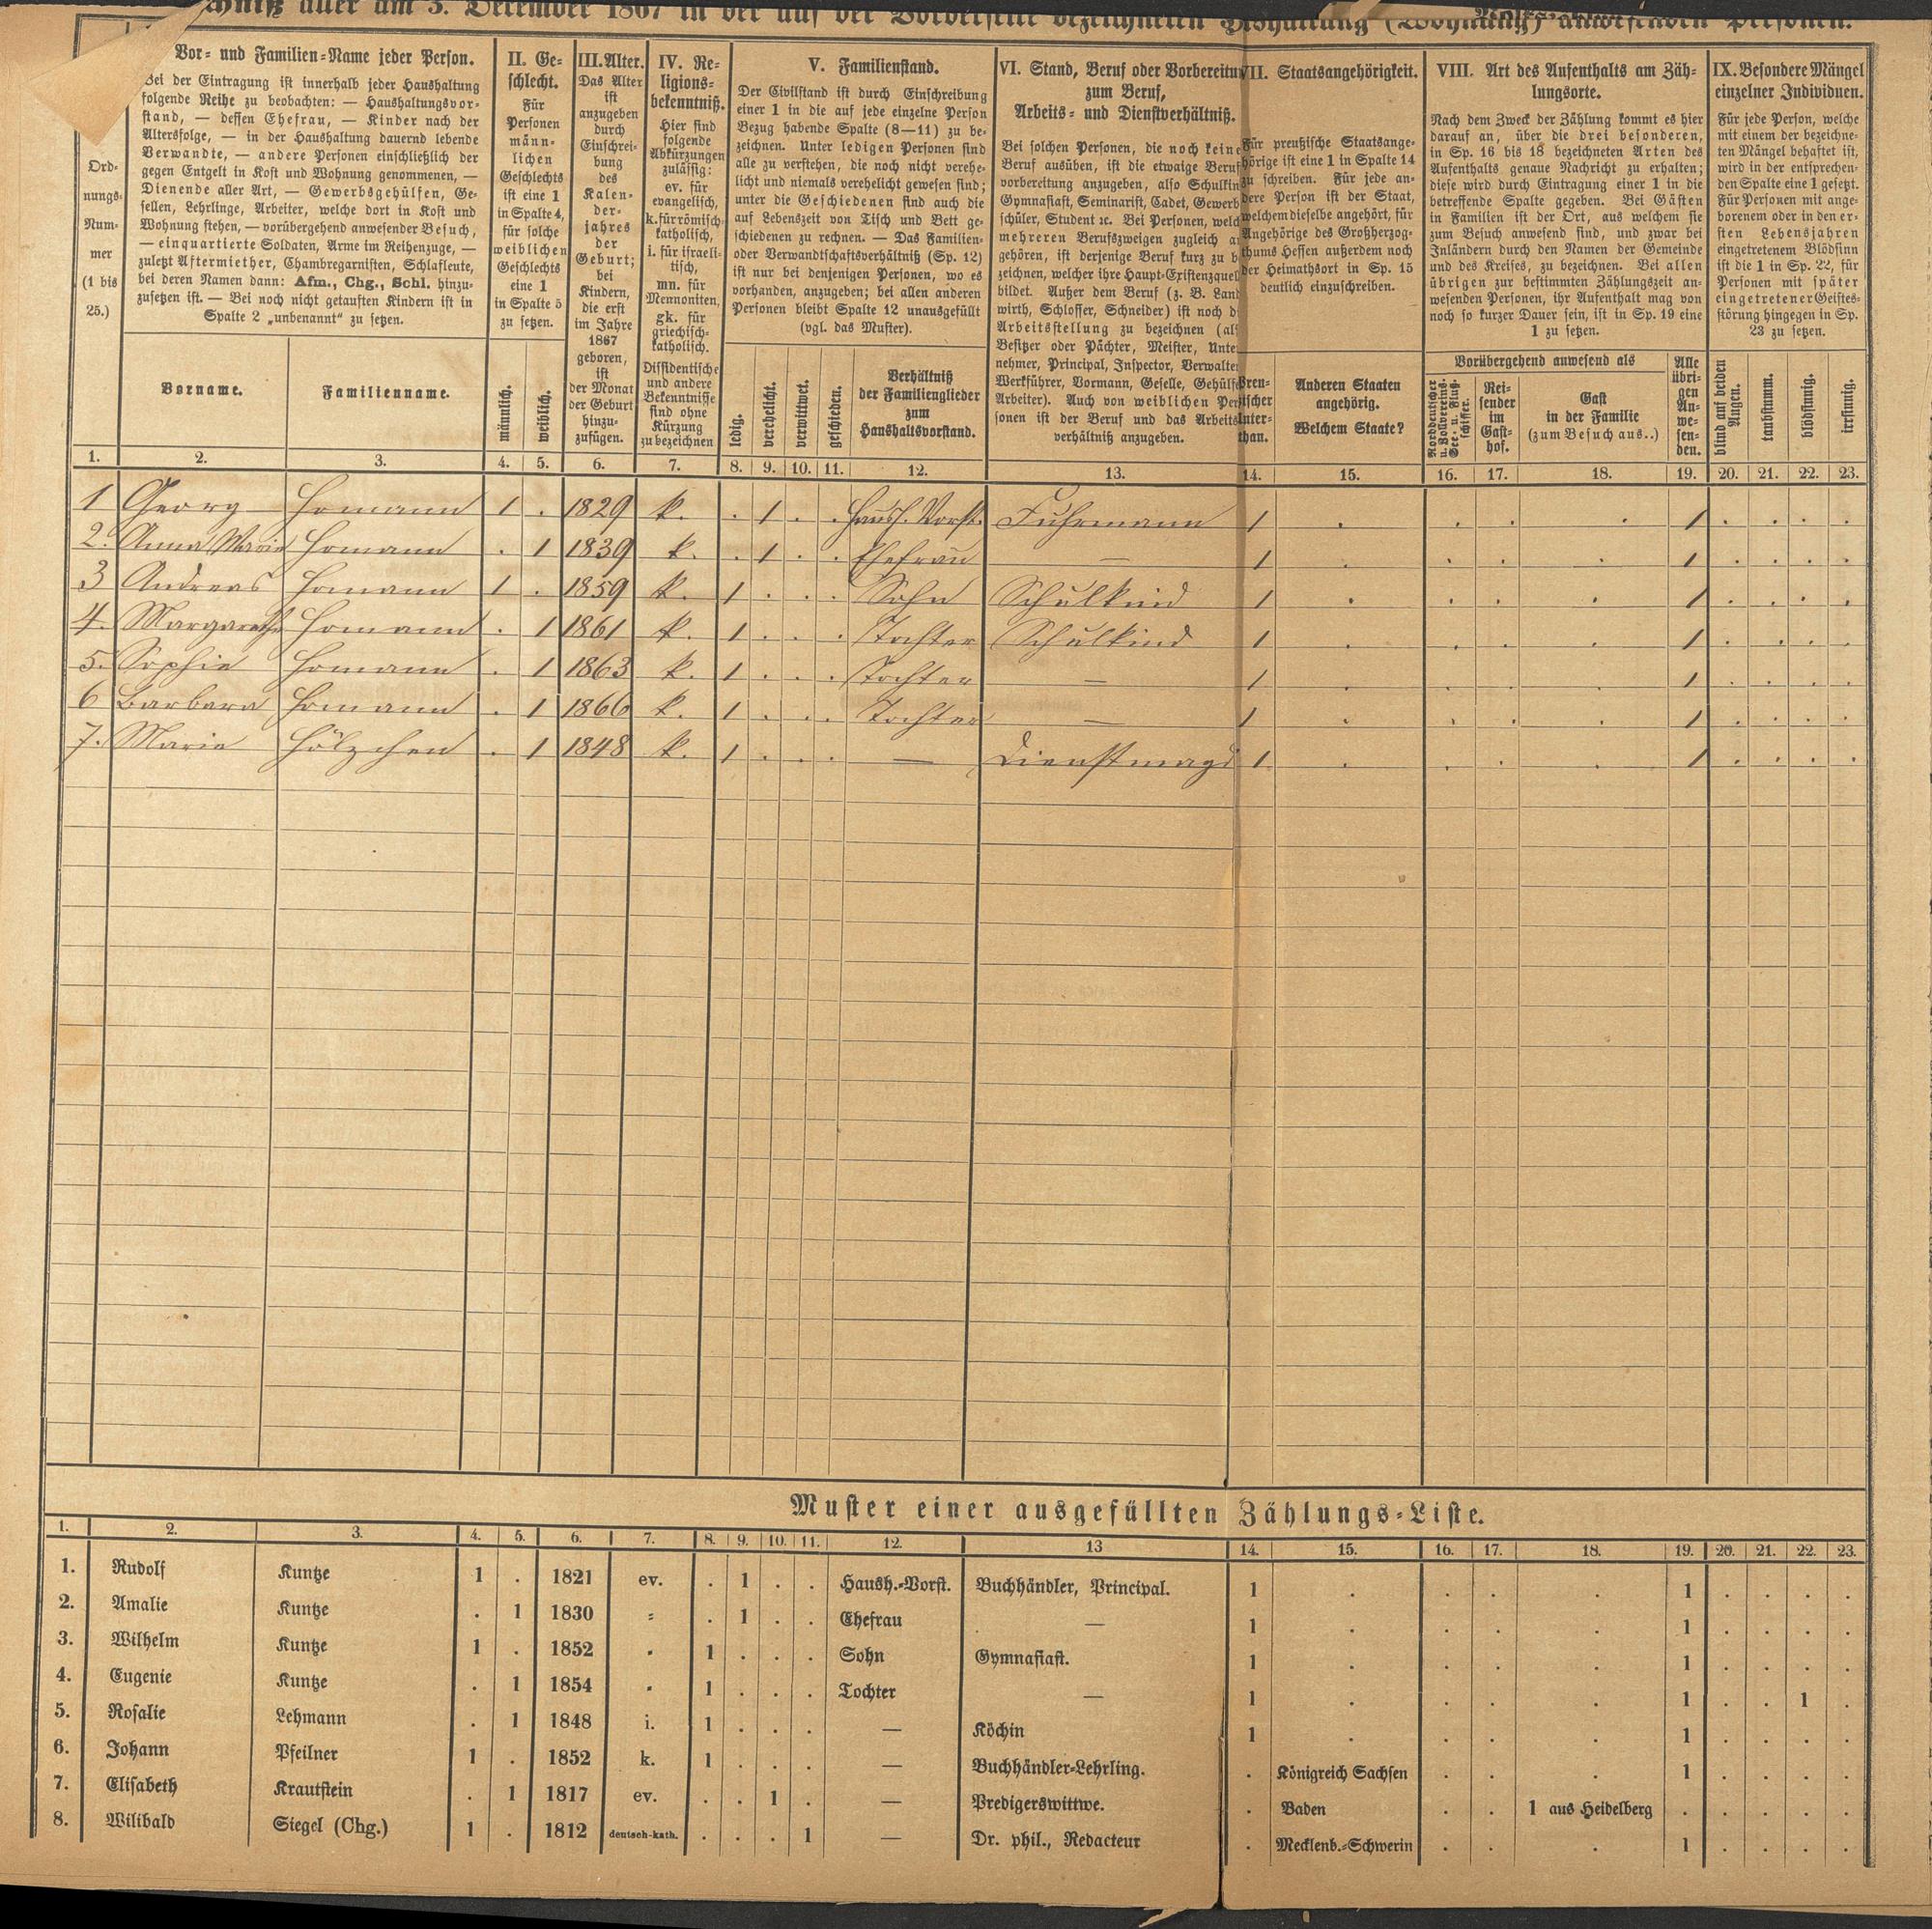 chniß aller am 3. December 1867 in der auf der Vorderseite bezeichneten Haushaltung (Wohnung) anwesenden Personen.
Ord-
nungs-
Num-
mer
(1 bis
25.)
Vor- und Familien-Name jeder Person.
Bei der Eintragung ist innerhalb jeder Haushaltung
folgende Reihe zu beobachten: — Haushaltungsvor-
stand, — dessen Ehefrau, — Kinder nach der
Altersfolge, — in der Haushaltung dauernd lebende
Verwandte, — andere Personen einschließlich der
gegen Entgelt in Kost und Wohnung genommenen, —
Dienende aller Art, — Gewerbsgehülfen, Ge-
sellen, Lehrlinge, Arbeiter, welche dort in Kost und
Wohnung stehen, — vorübergehend anwesender Besuch,
— einquartierte Soldaten, Arme im Reihenzuge, —
zuletzt Aftermiether, Chambregarnisten, Schlafleute,
bei deren Namen dann: Afm., Chg., Schl. hinzu-
zusetzen ist. — Bei noch nicht getauften Kindern ist in
Spalte 2 „unbenannt“ zu setzen.
Vorname.
Familienname.
II. Ge-
schlecht.
Für
Personen
männ-
lichen
Geschlechts
ist eine 1
in Spalte 4,
für solche
weiblichen
Geschlechts
eine 1
in Spalte 5
zu setzen.
männlich.
weiblich.
III. Alter.
Das Alter
ist
anzugeben
durch
Einschrei-
bung
des
Kalen-
der-
jahres
der
Geburt;
bei
Kindern,
die erst
im Jahre
1867
geboren,
ist
der Monat
der Geburt
hinzu-
zufügen.
IV. Re-
ligions-
bekenntniß.
Hier sind
folgende
Abkürzungen
zulässig:
ev. für
evangelisch,
k. für römisch-
katholisch,
i. für israeli-
tisch,
mn. für
Mennoniten,
gk. für
griechisch-
katholisch.
Dissidentische
und andere
Bekenntnisse
sind ohne
Kürzung
zu bezeichnen
V. Familienstand.
Der Civilstand ist durch Einschreibung
einer 1 in die auf jede einzelne Person
Bezug habende Spalte (8—11) zu be-
zeichnen. Unter ledigen Personen sind
alle zu verstehen, die noch nicht verehe-
licht und niemals verehelicht gewesen sind;
unter die Geschiedenen sind auch die
auf Lebenszeit von Tisch und Bett ge-
schiedenen zu rechnen. — Das Familien-
oder Verwandtschaftsverhältniß (Sp. 12)
ist nur bei denjenigen Personen, wo es
vorhanden, anzugeben; bei allen anderen
Personen bleibt Spalte 12 unausgefüllt
(vgl. das Muster).
ledig.
verehelicht.
verwittwet.
geschieden.
Verhältniß
der Familienglieder
zum
Haushaltsvorstand.
VI. Stand, Beruf oder Vorbereitun
zum Beruf,
Arbeits- und Dienstverhältniß.
Bei solchen Personen, die noch keine
Beruf ausüben, ist die etwaige Beruf
vorbereitung anzugeben, also Schulkin
Gymnasiast, Seminarist, Cadet, Gewerb
schüler, Student ec. Bei Personen, welc
mehreren Berufszweigen zugleich a
gehören, ist derjenige Beruf kurz zu b
zeichnen, welcher ihre Haupt-Existenzquel
bildet. Außer dem Beruf (z. B. Land
wirth, Schlosser, Schneider) ist noch d
Arbeitsstellung zu bezeichnen (al
Besitzer oder Pächter, Meister, Unte
nehmer, Principal, Inspector, Verwalte
Werkführer, Vormann, Geselle, Gehülf
Arbeiter). Auch von weiblichen Per
sonen ist der Beruf und das Arbeits
verhältniß anzugeben.
VII. Staatsangehörigkeit.
Für preußische Staatsange-
hörige ist eine 1 in Spalte 14
zu schreiben. Für jede an-
dere Person ist der Staat,
welchem dieselbe angehört, für
Angehörige des Großherzog-
thums Hessen außerdem noch
der Heimathsort in Sp. 15
deutlich einzuschreiben.
Preu-
ßischer
Unter-
than.
Anderen Staaten
angehörig.
Welchem Staate?
VIII. Art des Aufenthalts am Zäh-
lungsorte.
Nach dem Zweck der Zählung kommt es hier
darauf an, über die drei besonderen,
in Sp. 16 bis 18 bezeichneten Arten des
Aufenthalts genaue Nachricht zu erhalten;
diese wird durch Eintragung einer 1 in die
betreffende Spalte gegeben. Bei Gästen
in Familien ist der Ort, aus welchem sie
zum Besuch anwesend sind, und zwar bei
Inländern durch den Namen der Gemeinde
und des Kreises, zu bezeichnen. Bei allen
übrigen zur bestimmten Zählungszeit an-
wesenden Personen, ihr Aufenthalt mag von
noch so kurzer Dauer sein, ist in Sp. 19 eine
1 zu setzen.
Vorübergehend anwesend als
Norddeutscher
u. Zollvereins-
See- u. Fluß-
schiffer.
Rei-
sender
im
Gast-
hof.
Gast
in der Familie
(zum Besuch aus..)
Alle
übri-
gen
An-
we-
sen-
den.
IX. Besondere Mängel
einzelner Individuen.
Für jede Person, welche
mit einem der bezeichne-
ten Mängel behaftet ist,
wird in der entsprechen-
den Spalte eine 1 gesetzt.
Für Personen mit ange-
borenem oder in den er-
sten Lebensjahren
eingetretenem Blödsinn
ist die 1 in Sp. 22, für
Personen mit später
eingetretener Geistes-
störung hingegen in Sp.
23 zu setzen.
blind auf beiden
Augen.
taubstumm.
blödsinnig.
irrsinnig.
1. 2. 3. 4. 5. 6. 7. 8. 9. 10. 11. 12. 13. 14. 15. 16. 17. 18. 19. 20. 21. 22. 23.
1 Georg Homann 1 . 1829 k. . 1 . . Haush. Vorst. Fuhrmann 1 . . . . 1 . . . .
2. Anna Maria Homann . 1 1839 k. . 1 . . Ehefrau — 1 . . . . 1 . . . .
3 Andreas Homann 1 . 1859 k. 1 . . . Sohn Schulkind 1 . . . . 1 . . . .
4. Margarethe Homann . 1 1861 k. 1 . . . Tochter Schulkind 1 . . . . 1 . . . .
5. Sophie Homann . 1 1863 k. 1 . . . Tochter — 1 . . . . 1 . . . .
6 Barbara Homann . 1 1866 k. 1 . . . Tochter — 1 . . . . 1 . . . .
7. Maria Hölzchen . 1 1848 k. 1 . . . — Dienstmagd 1 . . . . 1 . . . .
Muster einer ausgefüllten Zählungs-Liste.
1. 2. 3. 4. 5. 6. 7. 8. 9. 10. 11. 12. 13 14. 15. 16. 17. 18. 19. 20. 21. 22. 23.
1. Rudolf Kuntze 1 . 1821 ev. . 1 . . Haush.-Vorst. Buchhändler, Principal. 1 . . . . 1 . . . .
2. Amalie Kuntze . 1 1830 = . 1 . . Ehefrau — 1 . . . . 1 . . . .
3. Wilhelm Kuntze 1 . 1852 " 1 . . . Sohn Gymnasiast. 1 . . . . 1 . . . .
4. Eugenie Kuntze . 1 1854 " 1 . . . Tochter — 1 . . . . 1 . . 1 .
5. Rosalie Lehmann . 1 1848 i. 1 . . . — Köchin 1 . . . . 1 . . . .
6. Johann Pfeilner 1 . 1852 k. 1 . . . — Buchhändler-Lehrling. . Königreich Sachsen . . . 1 . . . .
7. Elisabeth Krautstein . 1 1817 ev. . . 1 . — Predigerswittwe. . Baden . . 1 aus Heidelberg . . . . .
8. Wilibald Siegel (Chg.) 1 . 1812 deutsch-kath. . . . 1 — Dr. phil., Redacteur . Mecklenb.-Schwerin . . . 1 . . . .